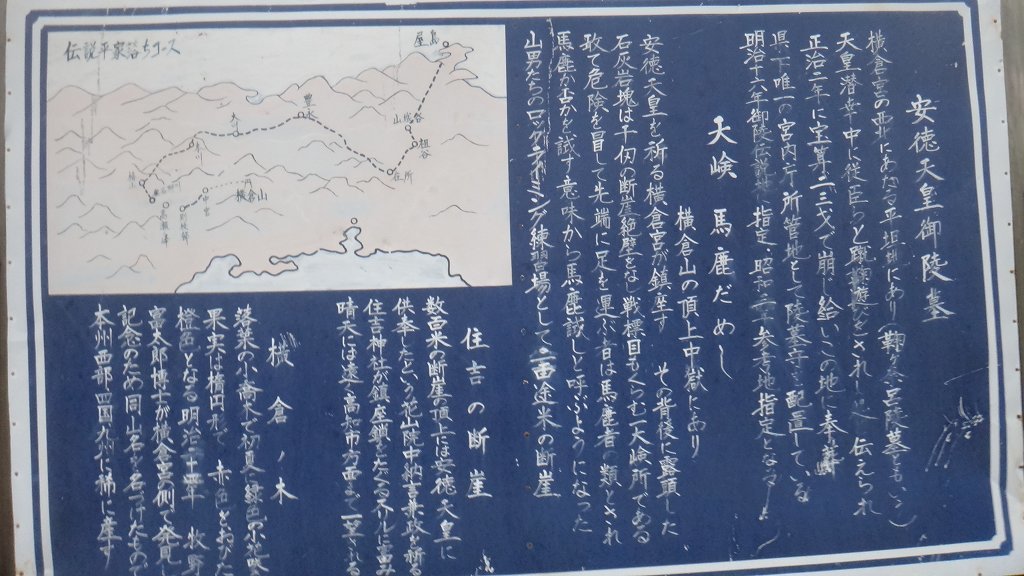 安徳天皇御陵墓
横倉宮の西にあたる平坦地にあり(鞠ヶ奈陵墓ともいう)
天皇潜幸中に従臣らと蹴鞠遊びをされし処と伝えられ
正治二年に宝算二十三才で崩じ給いこの地に奉葬
県下唯一の宮内庁所管地として陵墓守を配置している
明治十六年御陵 指定 昭和 参考地指定となる
天嶮 馬鹿だめし
横倉山の頂上中嶽にあり
安徳天皇を祈る横倉宮が鎮座す その背後に露頭した
石灰岩塊は千仞の断崖絶壁をなし戦慄目もくらむ一大嶮所である
敢て危険を冒して先端に足を運ぶ者は馬鹿者の類とされ
馬鹿か否かを試す意味から馬鹿試しと呼ぶようになった
山男たちのロッククライミング練習場として 米の断崖
住吉の断崖
数百米の断崖の頂上には安徳天皇に
供奉したという花山院中納言兼政を祈る
住吉神社が鎮座 に富み
晴天には遠く高知市方面まで一望
横倉ノ木
落葉の小喬木で初夏に緑色の小花咲
果実は楕円形で赤色をおびた
橙色となる 明治二十四年 牧野
富太郎博士が横倉宮側で発見
記念のため同山名を名づけたもので
本州西部四国九州に稀に産す
伝説平家落ちコース
屋島
祖谷
在所
豊永
横倉山
中宮